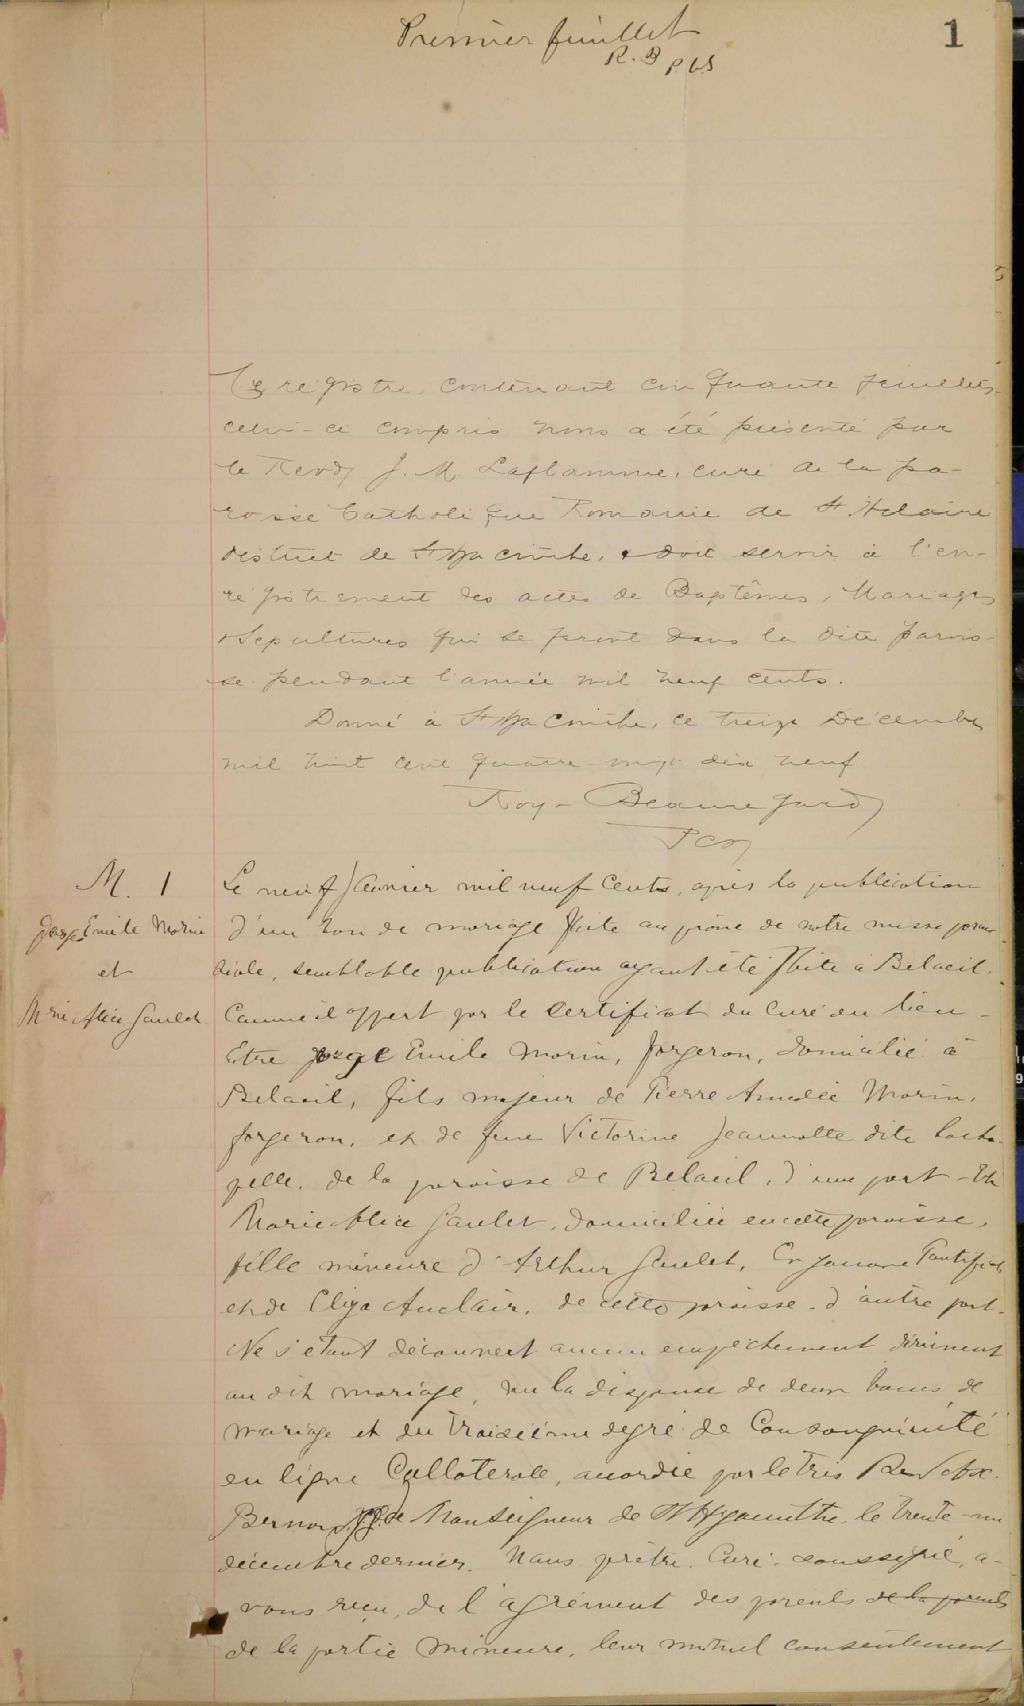 Premier feuillet
R. B P.C.S
1
Ce registre, contenant cinquante feuillets
celui-ci compris nous a été présenté par
le Revd J. M. Laflamme, curé de la pa-
roisse Catholique Romaine de St Hilaire
district de St Hyacinthe, & doit servir à l'en-
régistrement des actes de Baptêmes, Mariages
& Sépultures qui se feront dans la dite parois-
se pendant l'année mil neuf cents.
Donné à St Hyacinthe, ce treize Décembre
mil huit cent quatre-vingt dix neuf
Roy-Beauregard
M. 1
Joseph Emile Morin
et
Marie Alice Goulet
Le neuf Janvier mil neuf cents, après la publication
d'un ban de mariage faite au prône de notre messe parois-
siale, semblable publication ayant été faite à Beloeil,
comme il appert par le certificat du Curé du lieu -
Entre Joseph Emile Morin, forgeron, domicilié à
Beloeil, fils majeur de Pierre Amédée Morin,
forgeron, et de feue Victorine Jeannotte dite Lacha-
pelle, de la paroisse de Beloeil, d'une part - Et
Marie Alice Goulet, domiciliée en cette paroisse,
fille mineure d'Arthur Goulet, Ex zouave Pontifical,
et de Eliza Auclair, de cette paroisse, d'autre part.
Ne s'étant découvert aucun empêchement dirimant
au dit mariage, vu la dispense de deux bancs de
mariage et du troisième degré de Consanguinité
en ligne Collatérale, accordée par le très Rev
Bernard, de Monseigneur de St Hyacinthe, le trente-un
décembre dernier. Nous prêtre, Curé, soussigné, a-
vons reçu, de l'agrément des parents de la parents
de la partie mineure, leur mutuel consentement